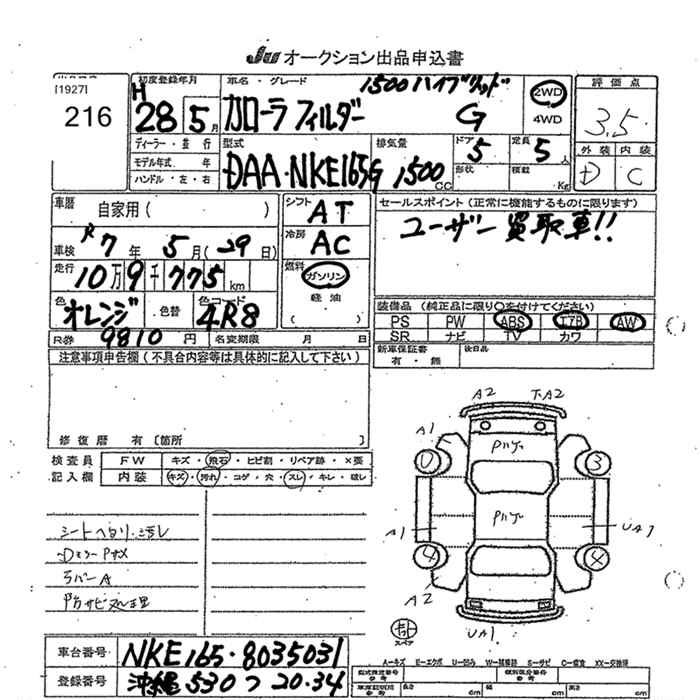 JU オークション出品申込書
[1927]
216
初度登録年月
H 28 5 月
車名・グレード
1500 ハイブリッド
カローラ フィルダー G
2WD
4WD
評価点
3.5
外装 内装
D C
ディーラー・並行
モデル年式 年
ハンドル・左・右
型式
DAA・NKE165G
排気量
1500 CC
ドア 5
形状
定員 5 人
積載 Kg
車歴
自家用( )
車検 R7年 5月(29日)
走行 10万9千775km
色 オレンジ 色替
色コード 4R8
シフト AT
冷房 AC
燃料
ガソリン
軽油
( )
セールスポイント(正常に機能するものに限ります)
ユーザー買取車!!
装備品(純正品に限り○を付けてください)
PS PW ABS エアB AW
SR ナビ TV カワ
新車保証書
有・無
後日品
R券 9810 円 名変期限 月 日
注意事項申告欄(不具合内容等は具体的に記入して下さい)
修復歴 有〔箇所 〕
検査員
記入欄
FW キズ・飛石・ヒビ割・リペア跡・×要
内装 キズ・汚れ・コゲ・穴・スレ・キレ・破レ
シートヘタリ・汚レ
Dミラー Pキズ
ラバーA
防サビ処理
A2 下A2
A1
3
A1
UA1
4 4
A2
UA1
スペア
車台番号 NKE165-8035031
登録番号 沖縄 530 つ 20-34
A-キズ E-エクボ U-凹み W-補修跡 S-サビ C-腐食 XX-交換済
型式指定番号
類別区分番号
参考
長さ cm 幅 cm 高さ cm